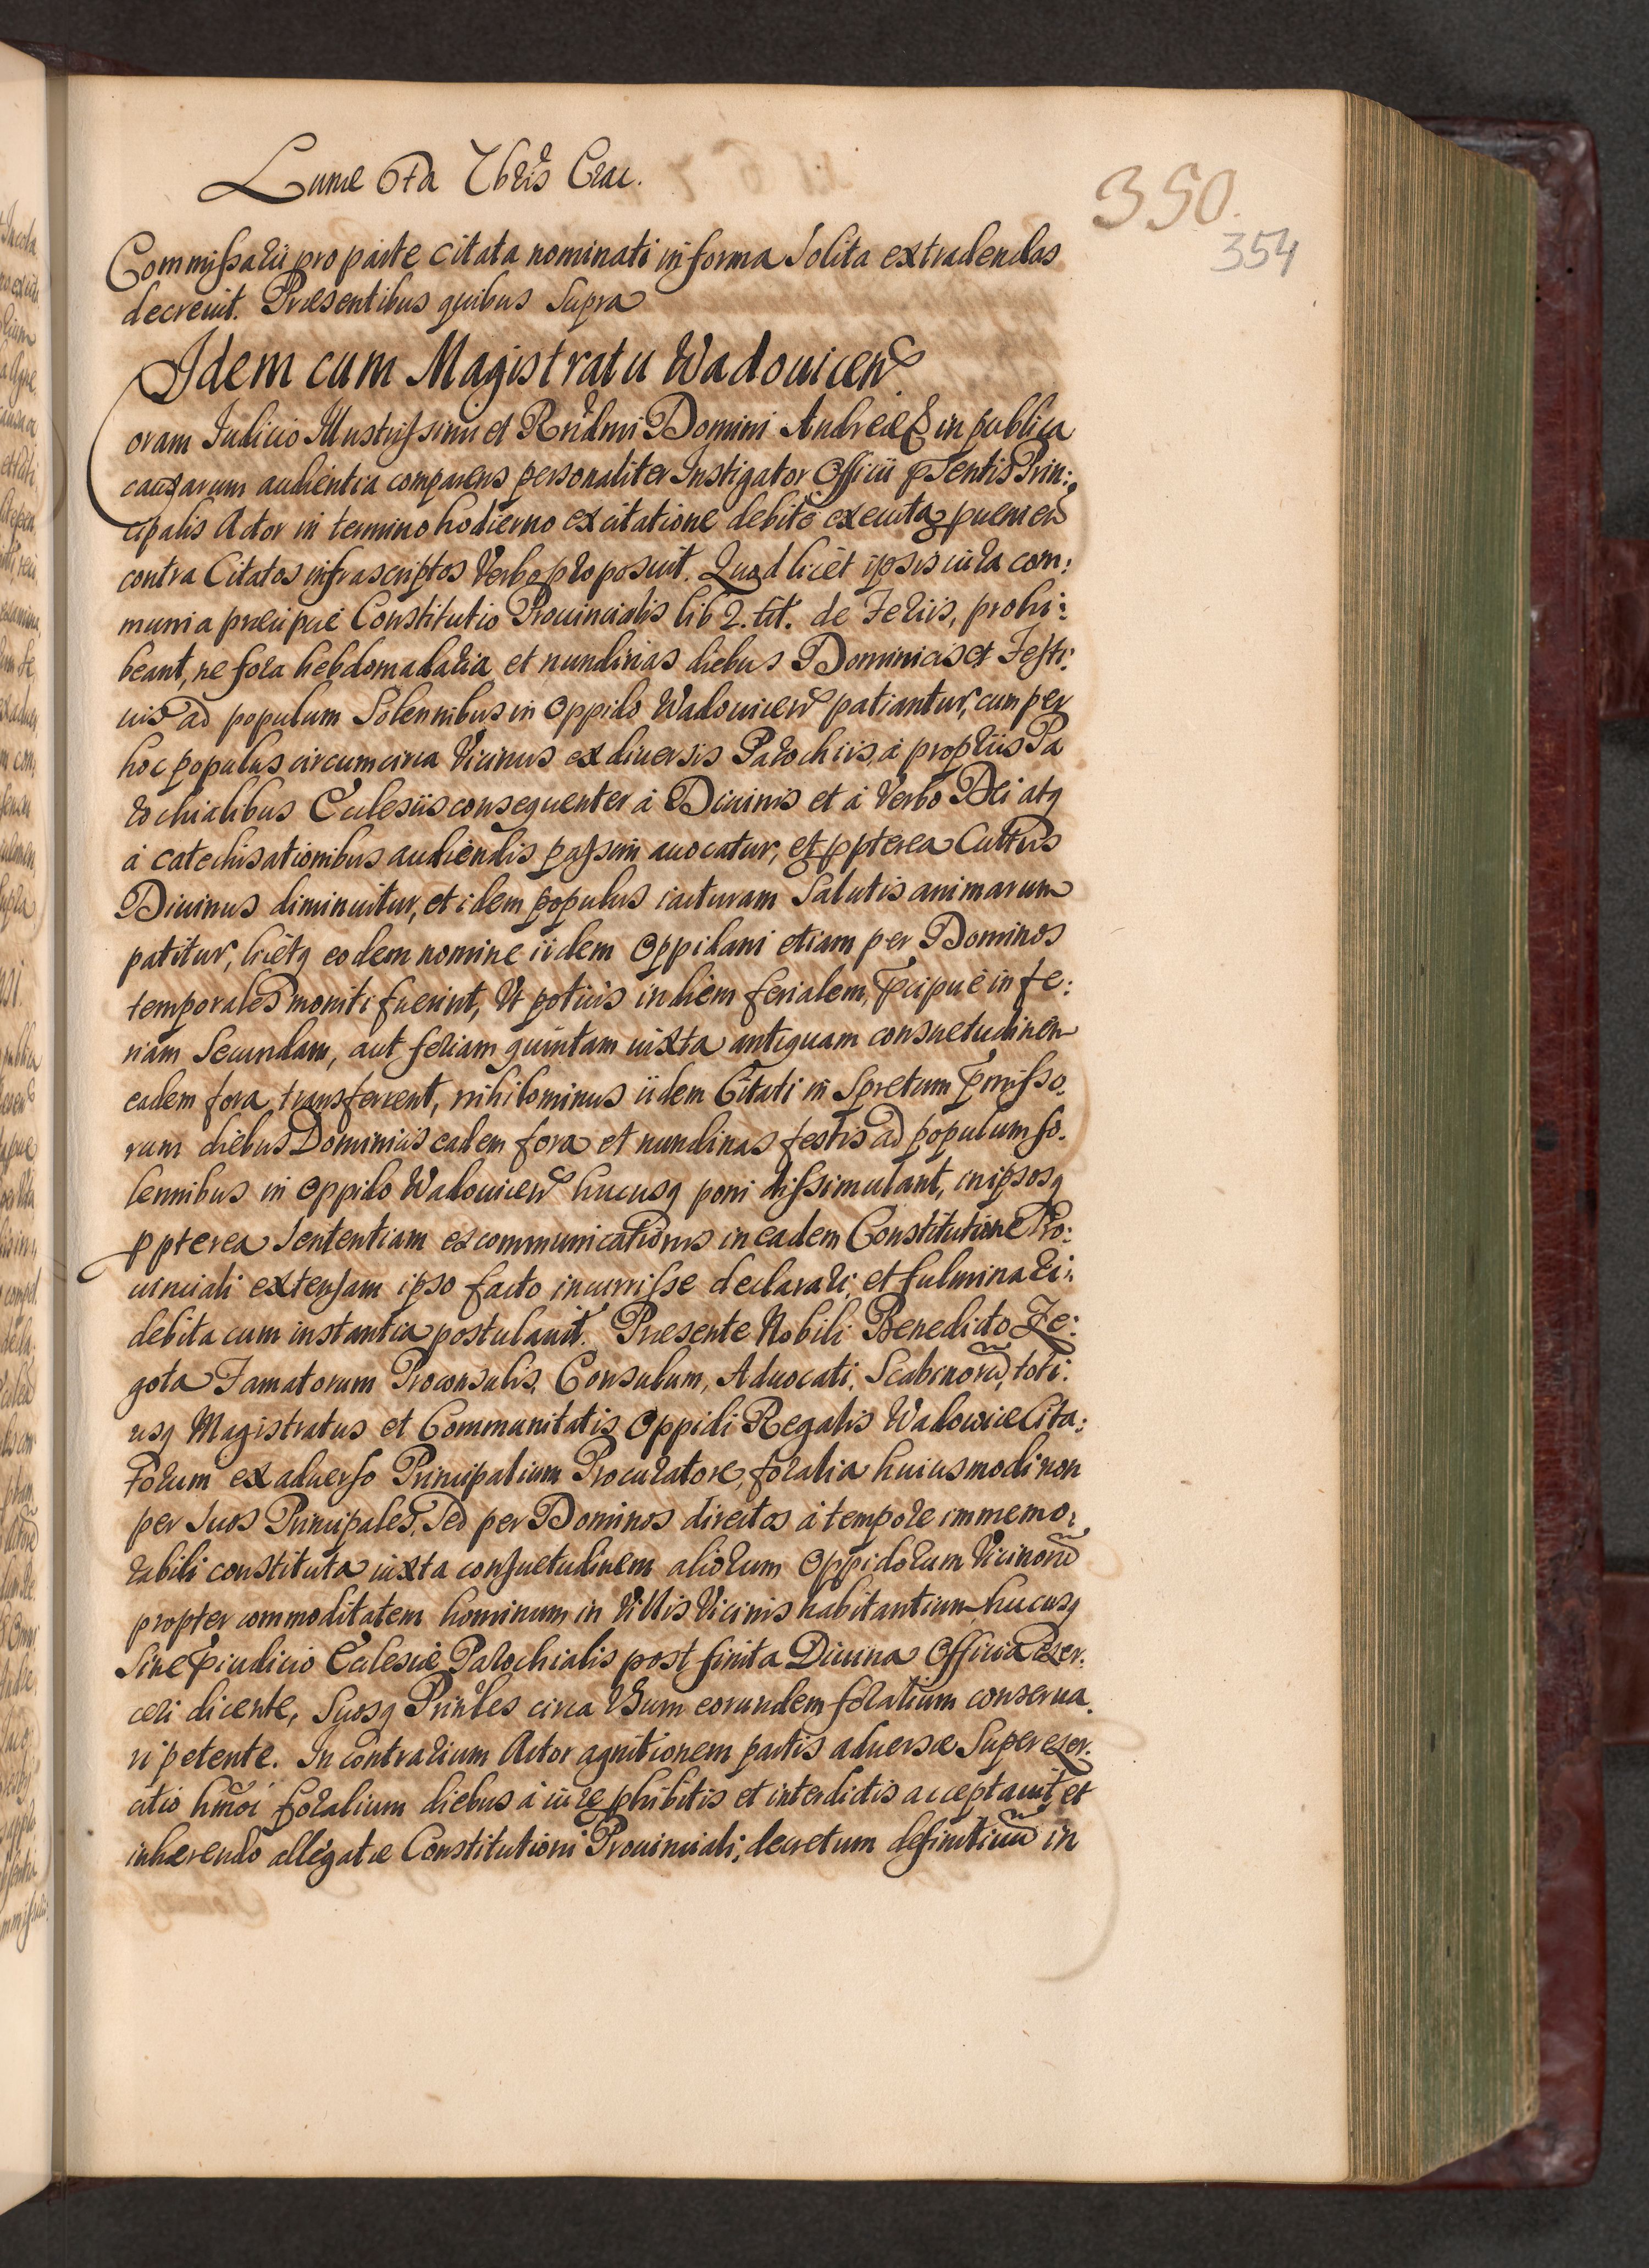 Lunæ 6ta 7bris Crac.
350.
354
Commissarii pro parte citata nominati in forma solita extradendas
decreuit. Præsentibus quibus supra
Idem cum Magistratu Wadouicen
Coram Iudicio Illustrissimi et Rndmi Domini Andreæ & in publica
causarum audientia comparens personaliter Instigator Officii pntis Prin:
cipalis Actor in termino hodierno ex citatione debitè executa
contra Citatos infrascriptos Verbo proposuit. Quod licèt ipsis iura com:
munia præcipuè Constitutio Prouincialis lib 2. tit. de Feriis, prohi:
beant, ne fora hebdomadaria et nundinas diebus Dominicis et Festi:
uis ad populum Solennibus in Oppido Wadouicen patiantur, cum per
hoc populus circumcirca Vicinus ex diuersis Parochiis, à propriis Pa
rochialibus Ecclesiis consequenter à Diuinis et à Verbo Dei atq
à catechisationibus audiendis passim auocatur, et ppterea Cultus
Diuinus diminuitur, et idem populus iacturam Salutis animarum
patitur, licètq eodem nomine iidem Oppidani etiam per Dominos
temporales moniti fuerint, Vt potius in diem ferialem, pcipuè in fe:
riam Secundam, aut feriam quintam iuxta antiquam consuetudinem
eadem fora transferrent, nihilominus iidem Citati in Spretum pmisso.
rum diebus Dominicis eadem fora et nundinas festis ad populum so.
lennibus in Oppido Wadouicen hucusq poni dissimulant, in ipsosq
ppterea Sententiam excommunicationis in eadem Constitutione Pro:
uinciali extensam ipso facto incurrisse declarari, et fulminari.
debita cum instantia postulauit. Præsente Nobili Benedicto Ze:
gota Famatorum Proconsulis, Consulum, Aduocati, Scabinorũ, toti:
usq Magistratus et Communitatis Oppidi Regalis Wadowice Cita:
torum ex aduerso Principalium Procuratore, foralia huiusmodi non
per Suos Principales, Sed per Dominos directos à tempore immemo:
rabili constituta iuxta consuetudinem aliorum Oppidorum Vicinorũ
propter commoditatem hominum in Villis Vicinis habitantium hucusq
Sine piudicio Ecclesiæ Parochialis post finita Diuina Officia exer.
ceri dicente, Suosq Prinles circa Vsum eorundem foralium conserua.
ri petente. In contrarium Actor agnitionem partis aduersæ Super exer.
citio hmõi foralium diebus à iure phibitis et interdictis acceptauit, et
inhærendo allegatæ Constitutioni Prouinciali, decretum definitiuũ in